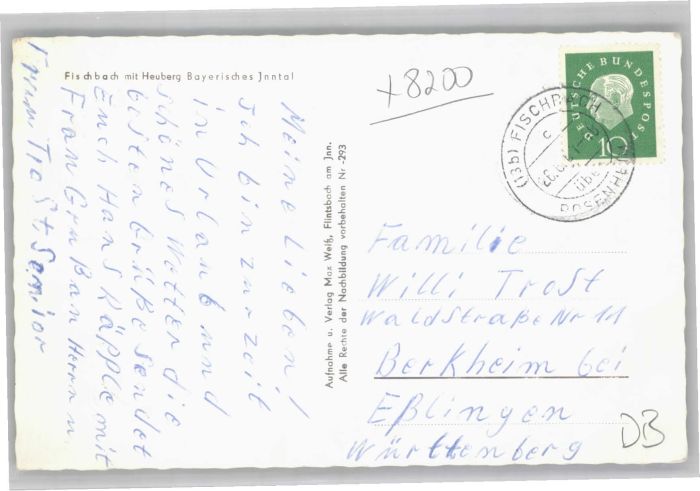 Fischbach mit Heuberg Bayerisches Jnntal
Meine Lieben!
Ich bin zur zeit
in Urlaub und
schönes Wetter die
besten Grüße sendet
Euch Hans Käpple mit
Frau Gruß an Herrn u.
Frau Trost, Senior
Aufnahme u. Verlag Max Weiß, Flintsbach am Jnn.
Alle Rechte der Nachbildung vorbehalten Nr -293
+8200
DEUTSCHE BUNDESPOST
10
(13b) FISCHBACH
über
ROSENHEIM
c
Familie
Willi Trost
Waldstraße Nr 11
Berkheim bei
Eßlingen
Württemberg
DB